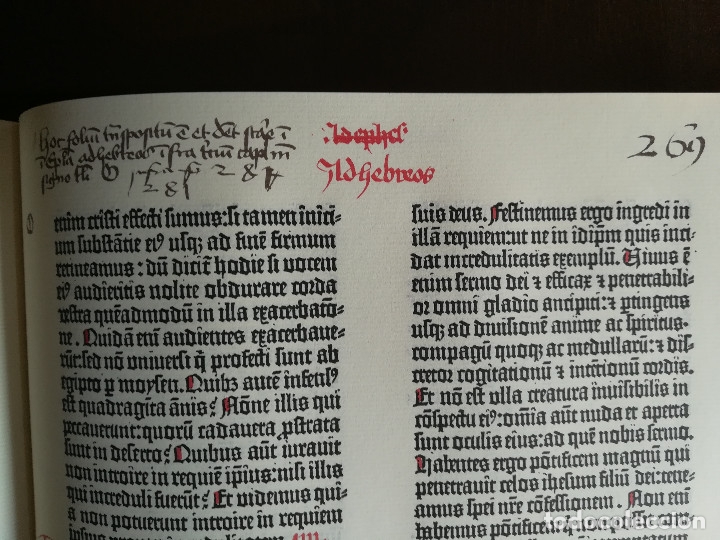 hoc foliū trāspositū ē et dēt stare ī
ī Epl̄a ad hebreos īfra
signo tali
Ad ephes
Ad hebreos
269
enim cristi effecti sumus: si tamen iniciu-
um substātie eiꝰ usqꝫ ad finē firmum
retineamus: dū dicit̄ hodie si vocem
eiꝰ audieritis nolite obdurare corda
vestra quēadmodū in illa exacerbatō-
ne. Quidā em̄ audientes exacerbave-
rūt: sed nō universi q̄ profecti sunt ab
egipto p̲ moysen. Quibꝫ autē infensꝰ
est quadragīta ānis? Nōne illis qui
peccaverunt: quorū cadavera p̄strata
sunt in deserto? Quibus aūt iuravit
non introire in requiē ip̄ius: nisi illis
qui increduli fuerūt? Et videmus qui-
a non potuerunt introire in requiem
ipsius
suis deus. Festinemus ergo ingredi in
illā requiem: ut ne in idip̄m quis inci-
dat incredulitatis exemplū. Vivus ē
enim sermo dei ⁊ efficax ⁊ penetrabili-
or omni gladio ancipiti: ⁊ p̲tingens
usqꝫ ad divisionē anime ac spiritus:
compagū quoqꝫ ac medullarū: ⁊ dis-
cretor cogitationū ⁊ intētionū cordis.
Et nō est ulla creatura invisibilis in
cōspectu eiꝰ: om̄ia aūt nuda et aperta
sunt oculis eius: ad quē nobis sermo.
Habentes ergo pōtificem magnū qui
penetravit celos ihesum filiū dei: tene-
amus spei nr̄e cōfessionem. Non em̄
habemus pōtificē
todocoleccion